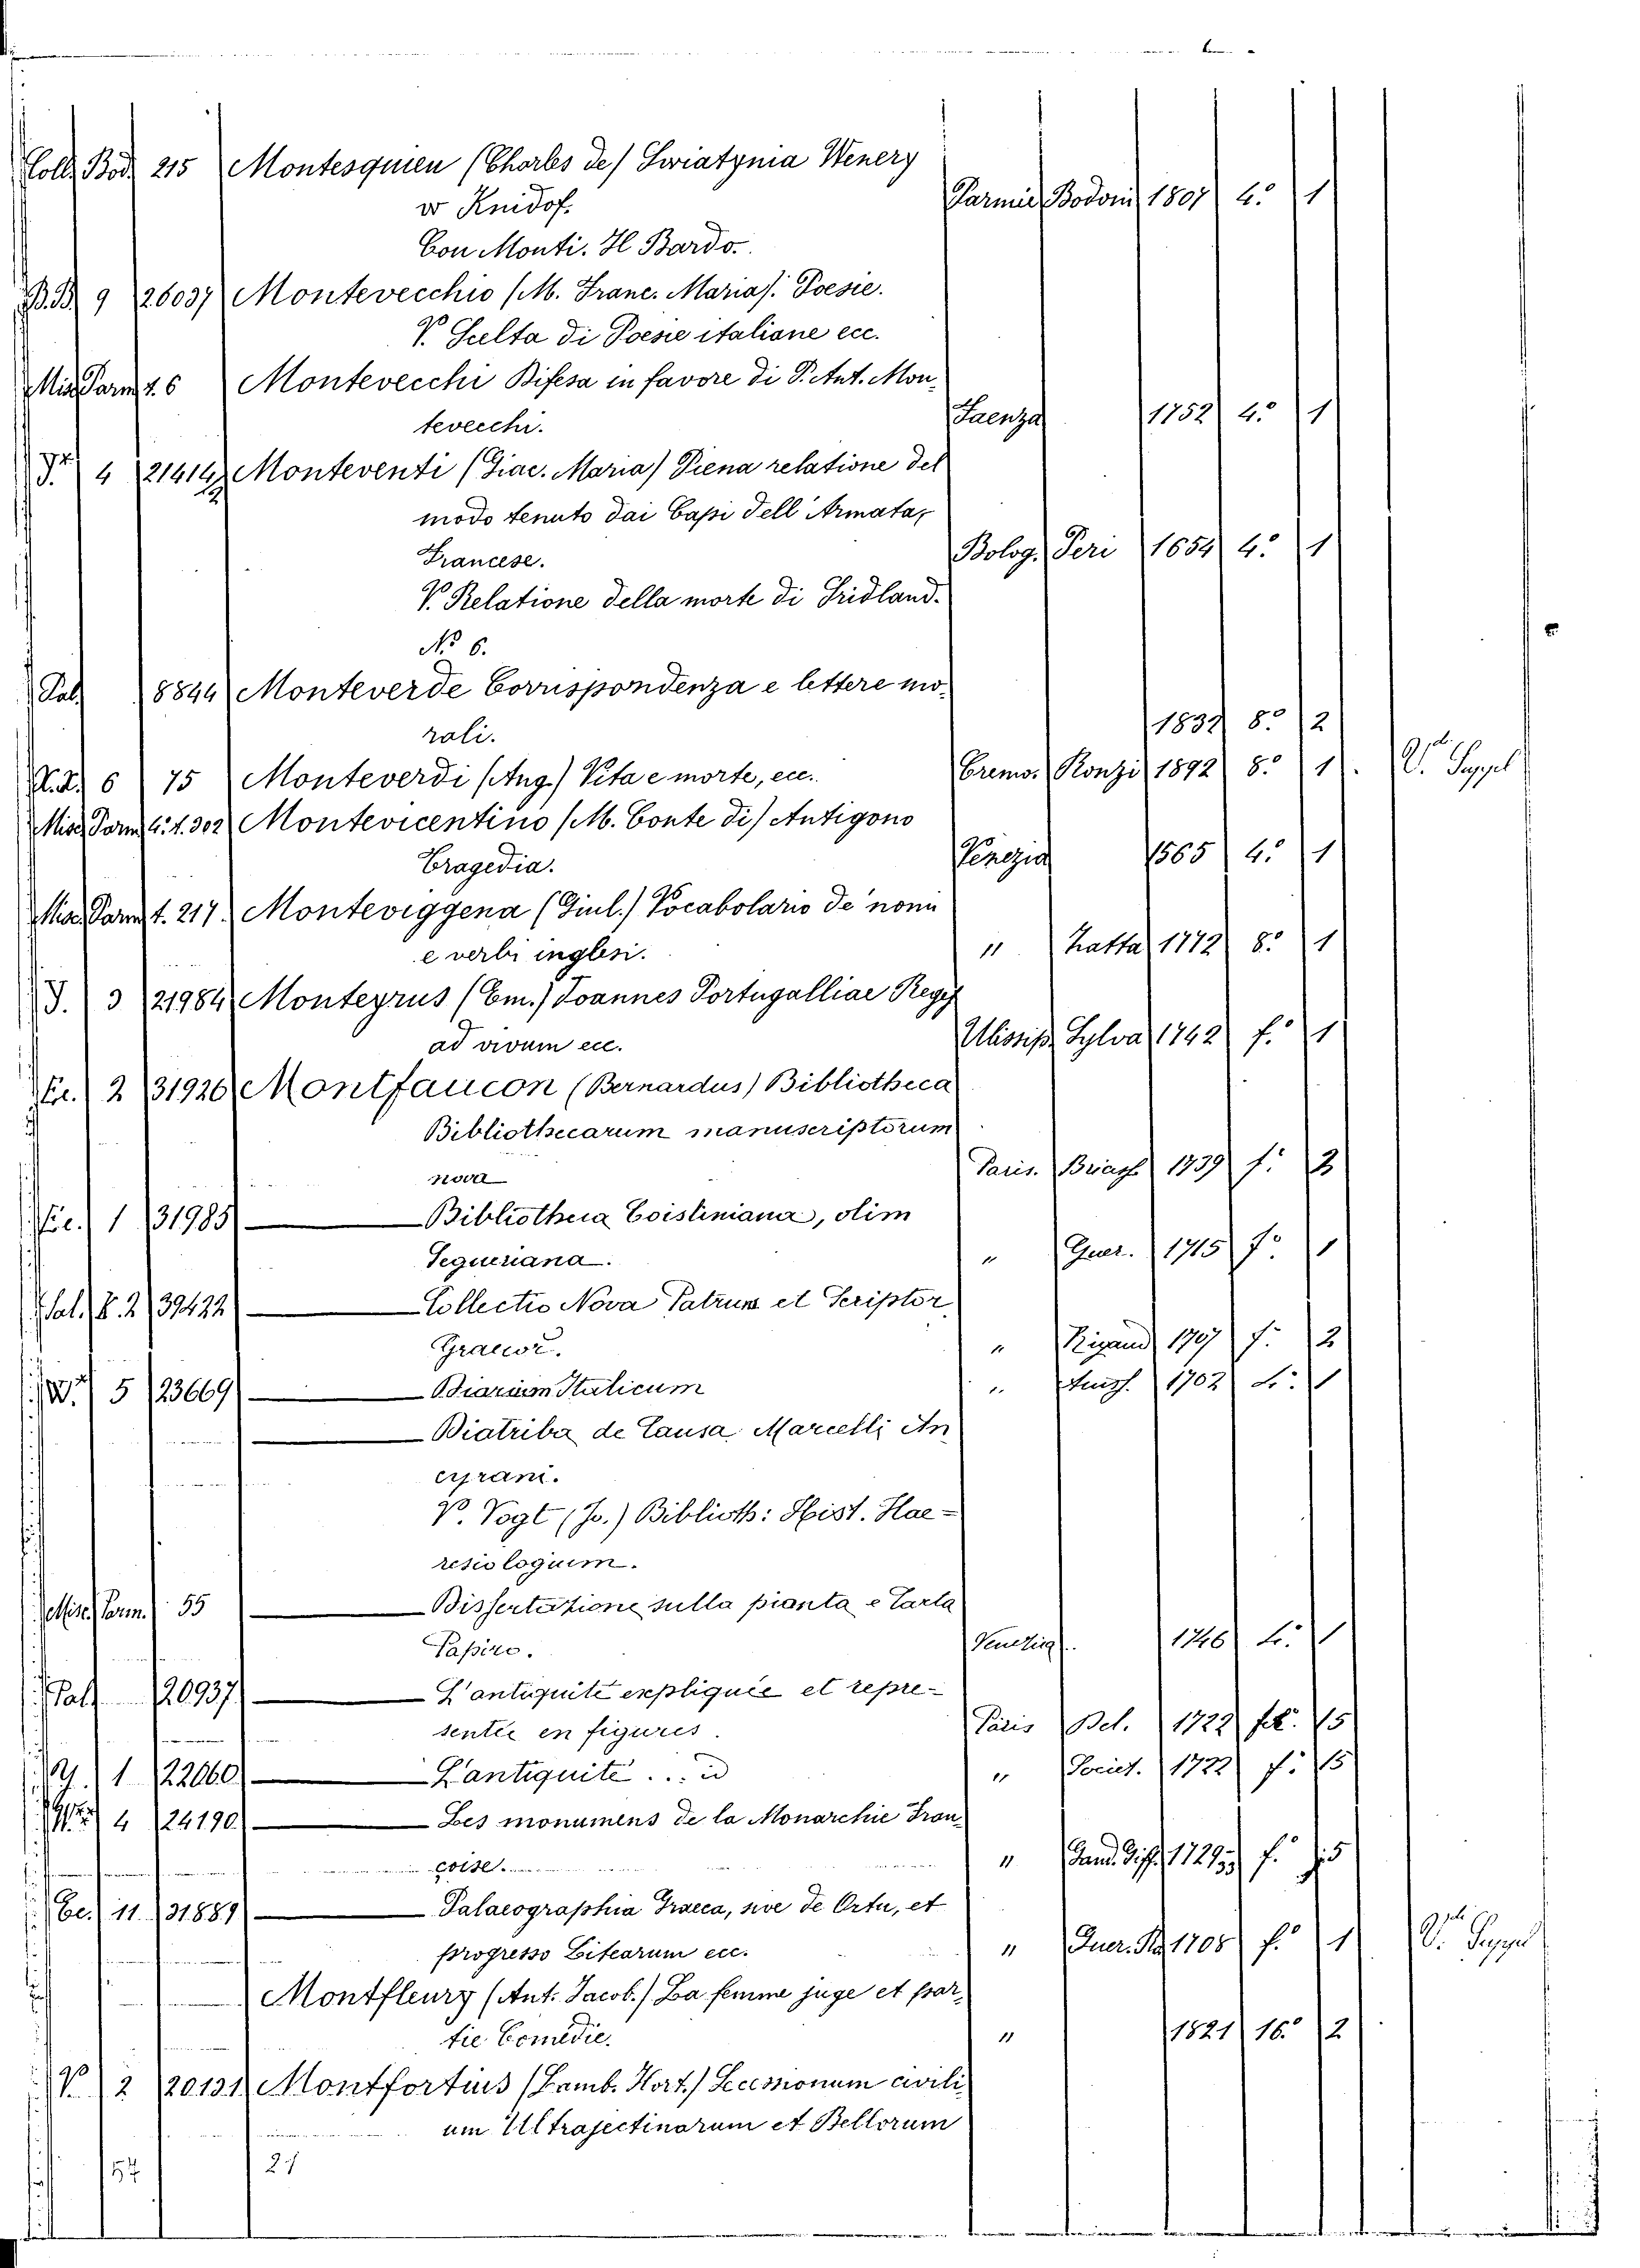 Coll. Bod. 215 Montesquieu (Charles de) Swiatynia Wenery
w Knidos. Parmie Bodoni 1807 4.° 1
Con Monti. Il Bardo.
B.B. 9 26037 Montevecchio (M. Franc. Maria). Poesie.
V. Scelta di Poesie italiane ecc.
Misc. Parm. t. 6 Montevecchi Difesa in favore di P. Ant. Mon-
tevecchi. Faenza 1752 4.° 1
4 21414 Monteventi (Giac. Maria) Piena relatione del
modo tenuto dai Capi dell'Armata
Francese. Bolog. Peri 1654 4.° 1
V. Relatione della morte di Fridland.
N.° 6.
Pal. 8844 Monteverde Corrispondenza e lettere mo-
rali. 1832 8.° 2
6 75 Monteverdi (Ang.) Vita e morte, ecc. Cremo. Ronzi 1892 8.° 1. V. Suppl
Misc. Parm. 4. t. 302 Montevicentino (M. Conte di) Antigono
Tragedia. Venezia 1565 4.° 1
Misc. Parm. t. 217. Monteviggena (Giul.) Vocabolario de' nomi
e verbi inglesi. " Tratta 1772 8.° 1
J. 3 21984 Monteyrus (Em.) Joannes Portugalliae Regis
ad vivum ecc. Ulissip. Sylva 1742 f.° 1
2 31926 Montfaucon (Bernardus) Bibliotheca
Bibliothecarum manuscriptorum
nova Paris. Briass. 1739 f.° 2
1 31985 — Bibliotheca Coisliniana, olim
Segueriana. " Guer. 1715 f.° 1
Pal. B. 2 39422 — Collectio Nova Patrum et Scriptor
Graecor. " Rigaud 1707 f.° 2
5 23669 — Diarium Italicum " Aniss. 1702 4.° 1
— Diatriba de Causa Marcelli An
cyrani.
V. Vogt (Jo.) Biblioth: Hist. Hae=
resiologuim.
Misc. Parm. 55 — Dissertazione sulla pianta e Carta
Papiro. Venezia. 1746 4.° 1
Pal. 20937 — L'antiquité expliquée et repre-
sentée en figures. Paris Del. 1722 15
1 22060 — L'antiquité ... id " Societ. 1722 f.° 15
4 24190 — Les monumens de la Monarchie Fran-
coise. " Gand. Giff. 1729 f.° 5
11 31889 — Palaeographia Graeca, sive de Ortu, et
progresso Litearum ecc. " Guer. 1708 f.° 1 V. Suppl
Montfleury (Ant. Jacob.) La femme juge et par-
tie Comédie. " 1821 16.° 2
V. 2 20131 Montfortius (Lamb. Hort.) Secessionum civili
um Ultrajectinarum et Bellorum
57 27